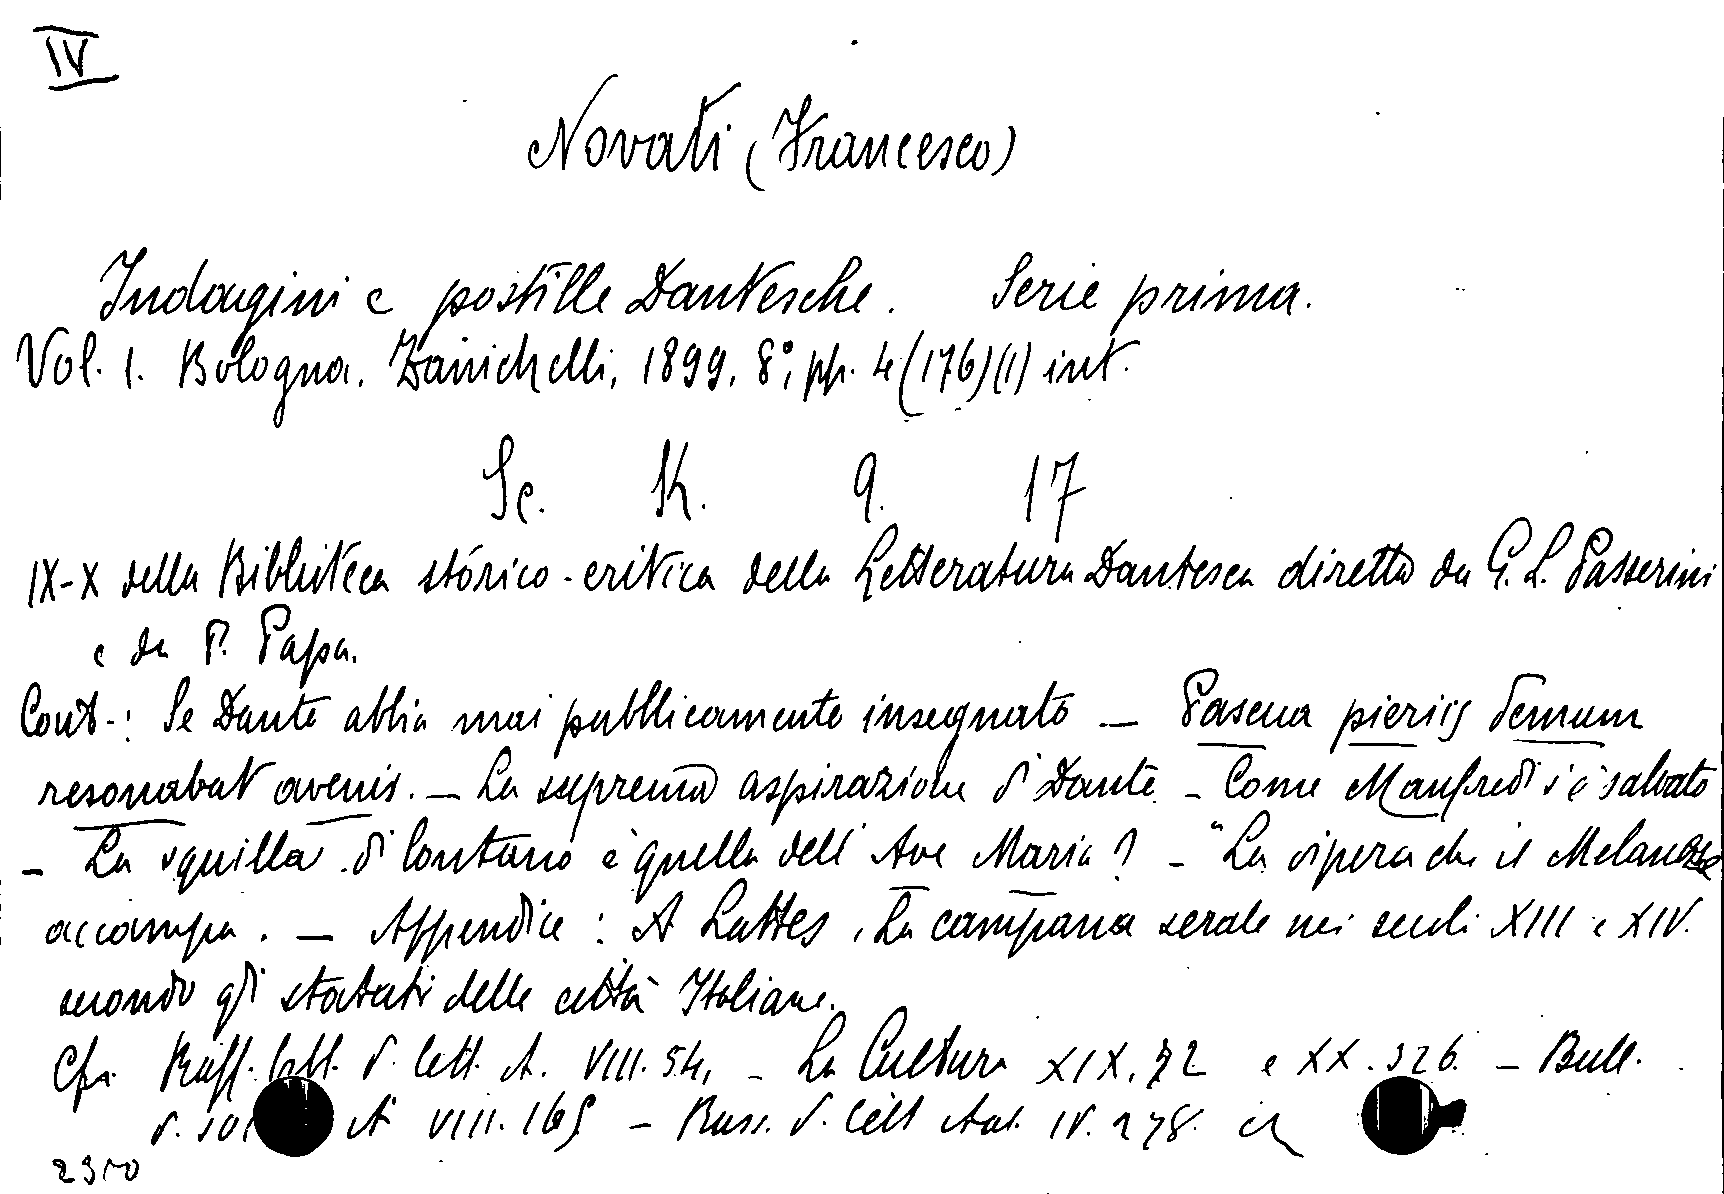 IV
Novati (Francesco)
Indagini e postille Dantesche. Serie prima.
Vol. 1. Bologna, Zanichelli, 1899, 8°, pp. 4 (176) (1) int.
Sc. K. 9. 17
IX-X della Biblioteca stórico-critica della Letteratura Dantesca diretta da G. L. Passerini
e da P. Papa.
Cont-: Se Dante abbia mai pubblicamente insegnato — Pascua pieriis demum
resonabat avenis. — La suprema aspirazione di Dante — Come Manfredi s'è salvato
— La squilla di lontano è quella dell'Ave Maria? — "La vipera che il Melanese
accampa. — Appendice: A Lattes, La campana serale nei secoli XIII e XIV.
secondo gli statuti delle città Italiane.
Cfr. Rass. bibl. d. lett. it. VIII. 54, — La Cultura XIX, 72 e XX. 326. — Bull.
d. it. VIII. 165 — Rass. d. lett ital. IV. 278.
2350